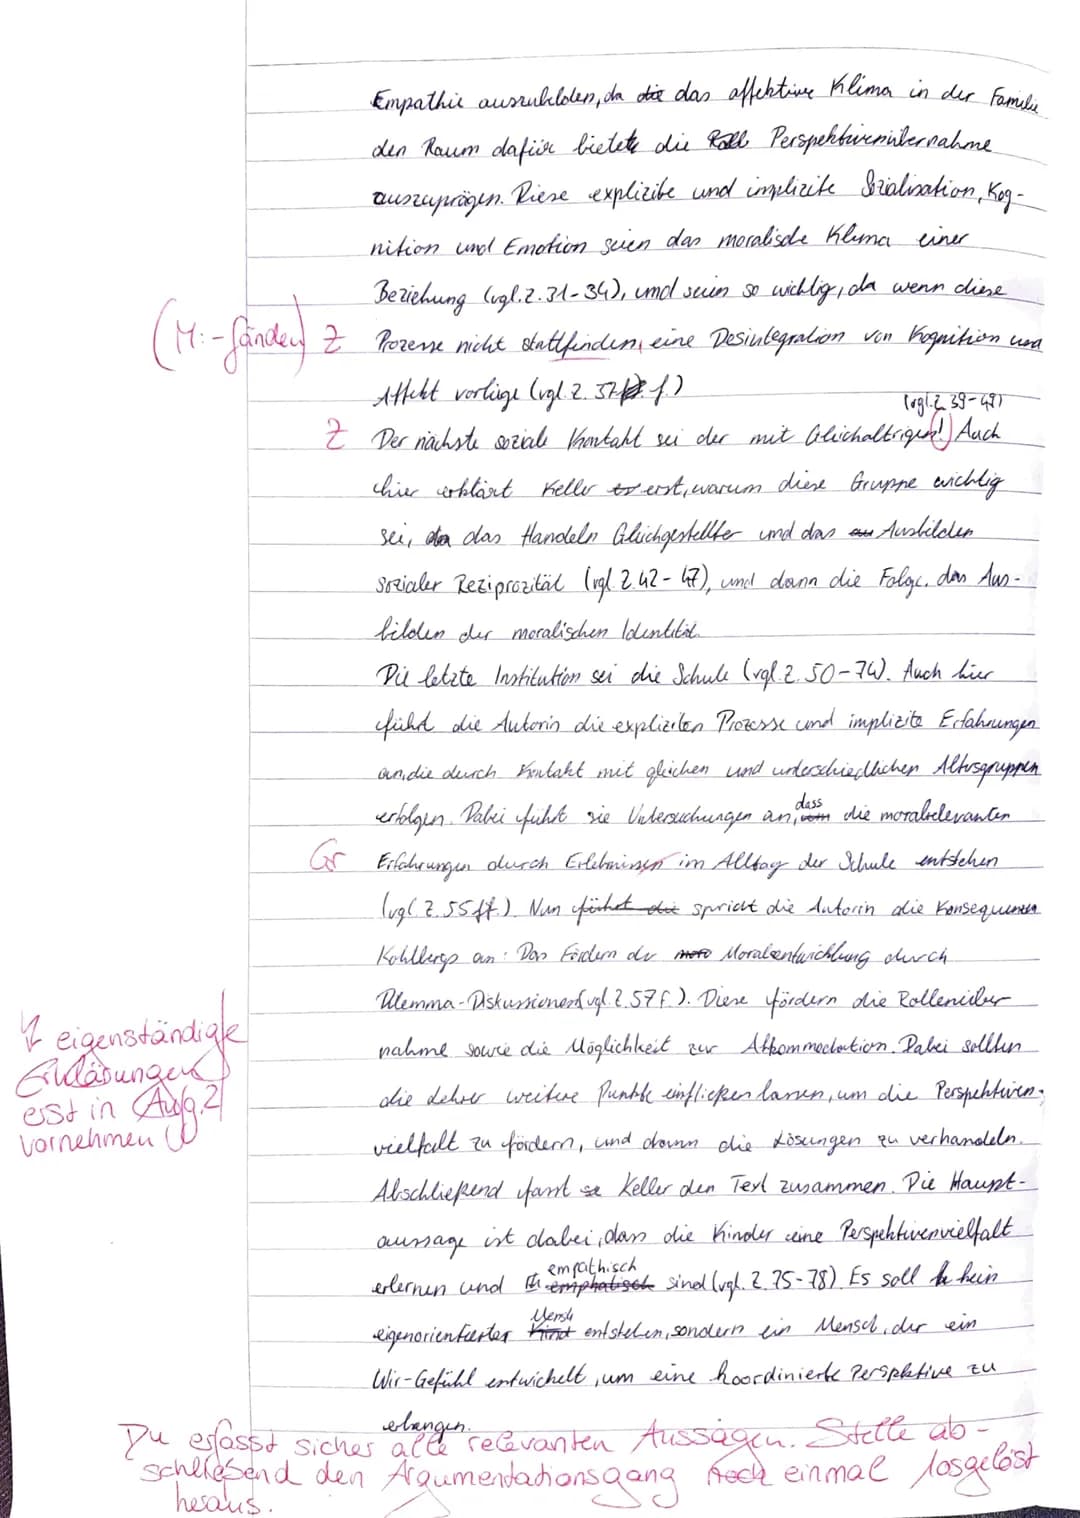 Empathie auszubilden, da die das affektive Klima in der Familie
den Raum dafür bietet die Roll Perspektivenübernahme
auszuprägen. Diese explizite und implizite Sozialisation, Kog-
nition und Emotion seien das moralische Klima einer
Beziehung (vgl. Z. 31-34), und seien so wichtig, da wenn diese
(M: -fänden) Z Prozesse nicht stattfinden, eine Desintegration von Kognition und
Affekt vorläge (vgl. Z. 37 f.)
(vgl. Z. 39-49)
Z Der nächste soziale Kontakt sei der mit Gleichaltrigen! Auch
hier erklärt Keller erst, warum diese Gruppe wichtig
sei, da das Handeln Gleichgestellter und das Ausbilden
sozialer Reziprozität (vgl. Z. 42-47), und dann die Folge, das Aus-
bilden der moralischen Identität.
Die letzte Institution sei die Schule (vgl. Z. 50-74). Auch hier
führt die Autorin die expliziten Prozesse und implizite Erfahrungen
an, die durch Kontakt mit gleichen und unterschiedlichen Altersgruppen
erfolgen. Dabei führt sie Untersuchungen an, dass die moralrelevanten
Gr Erfahrungen durch Erlebnissen im Alltag der Schule entstehen
(vgl. Z. 55 ff.). Nun führt die spricht die Autorin die Konsequenzen
Kohlbergs an: Das Fördern der Moralentwicklung durch
Dilemma-Diskussionen (vgl. Z. 57 f.). Diese fördern die Rollenüber
nahme sowie die Möglichkeit zur Akkommodation. Dabei sollten
die Lehrer weitere Punkte einfließen lassen, um die Perspektiven-
vielfalt zu fördern, und dann die Lösungen zu verhandeln.
↯ eigenständige
Erklärungen
erst in Aufg. 2
vornehmen
Abschließend fasst Keller den Text zusammen. Die Haupt-
aussage ist dabei, dass die Kinder eine Perspektivenvielfalt
empathisch
erlernen und emphatisch sind (vgl. Z. 75-78). Es soll kein
Mensch
eigenorientierter Kind entstehen, sondern ein Mensch, der ein
Wir-Gefühl entwickelt, um eine koordinierte Perspektive zu
erlangen.
Du erfasst sicher alle relevanten Aussagen. Stelle ab-
schließend den Argumentationsgang noch einmal losgelöst
heraus.